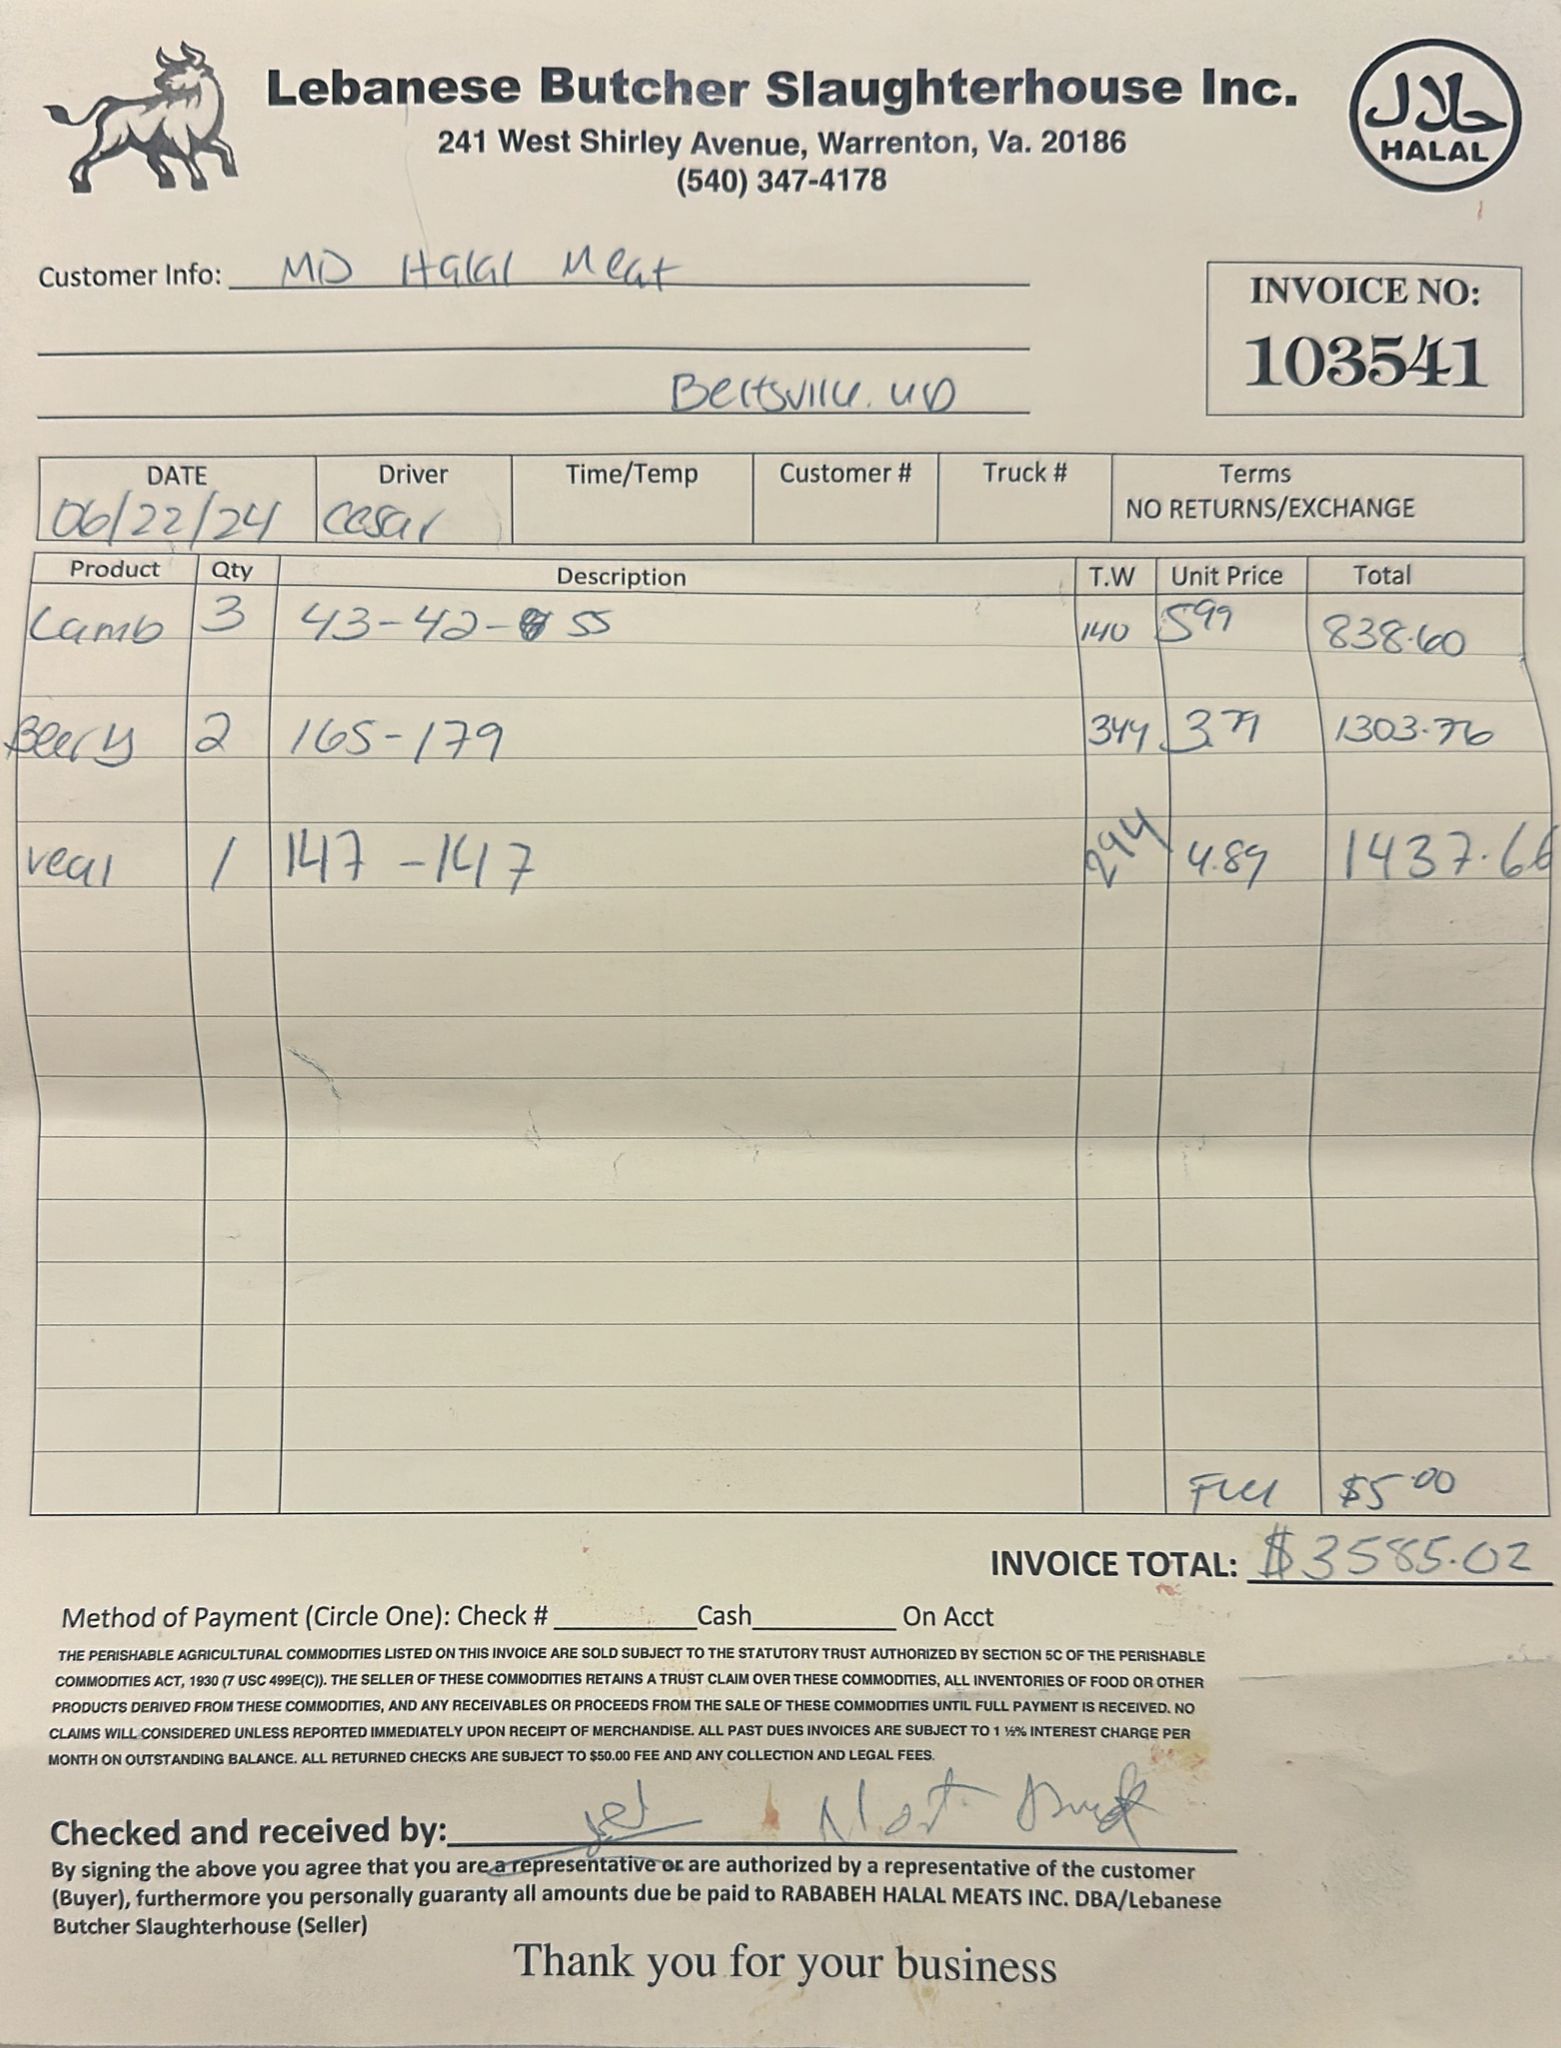 Lebanese Butcher Slaughterhouse Inc.
241 West Shirley Avenue, Warrenton, Va. 20186
(540) 347-4178
حلال
HALAL
Customer Info: MD Halal Meat
INVOICE NO:
103541
Beltsville. MD
DATE Driver Time/Temp Customer # Truck # Terms
06/22/24 Cesar NO RETURNS/EXCHANGE
Product Qty Description T.W Unit Price Total
Lamb 3 43-42- 55 140 5.99 838.60
2 165-179 344 3.79 1303.76
veal 1 147-147 294 4.89 1437.66
Fuel $5.00
INVOICE TOTAL: $3585.02
Method of Payment (Circle One): Check # Cash On Acct
THE PERISHABLE AGRICULTURAL COMMODITIES LISTED ON THIS INVOICE ARE SOLD SUBJECT TO THE STATUTORY TRUST AUTHORIZED BY SECTION 5C OF THE PERISHABLE
COMMODITIES ACT, 1930 (7 USC 499E(C)). THE SELLER OF THESE COMMODITIES RETAINS A TRUST CLAIM OVER THESE COMMODITIES, ALL INVENTORIES OF FOOD OR OTHER
PRODUCTS DERIVED FROM THESE COMMODITIES, AND ANY RECEIVABLES OR PROCEEDS FROM THE SALE OF THESE COMMODITIES UNTIL FULL PAYMENT IS RECEIVED. NO
CLAIMS WILL CONSIDERED UNLESS REPORTED IMMEDIATELY UPON RECEIPT OF MERCHANDISE. ALL PAST DUES INVOICES ARE SUBJECT TO 1 ½% INTEREST CHARGE PER
MONTH ON OUTSTANDING BALANCE. ALL RETURNED CHECKS ARE SUBJECT TO $50.00 FEE AND ANY COLLECTION AND LEGAL FEES.
Checked and received by: Not
By signing the above you agree that you are a representative or are authorized by a representative of the customer
(Buyer), furthermore you personally guaranty all amounts due be paid to RABABEH HALAL MEATS INC. DBA/Lebanese
Butcher Slaughterhouse (Seller)
Thank you for your business